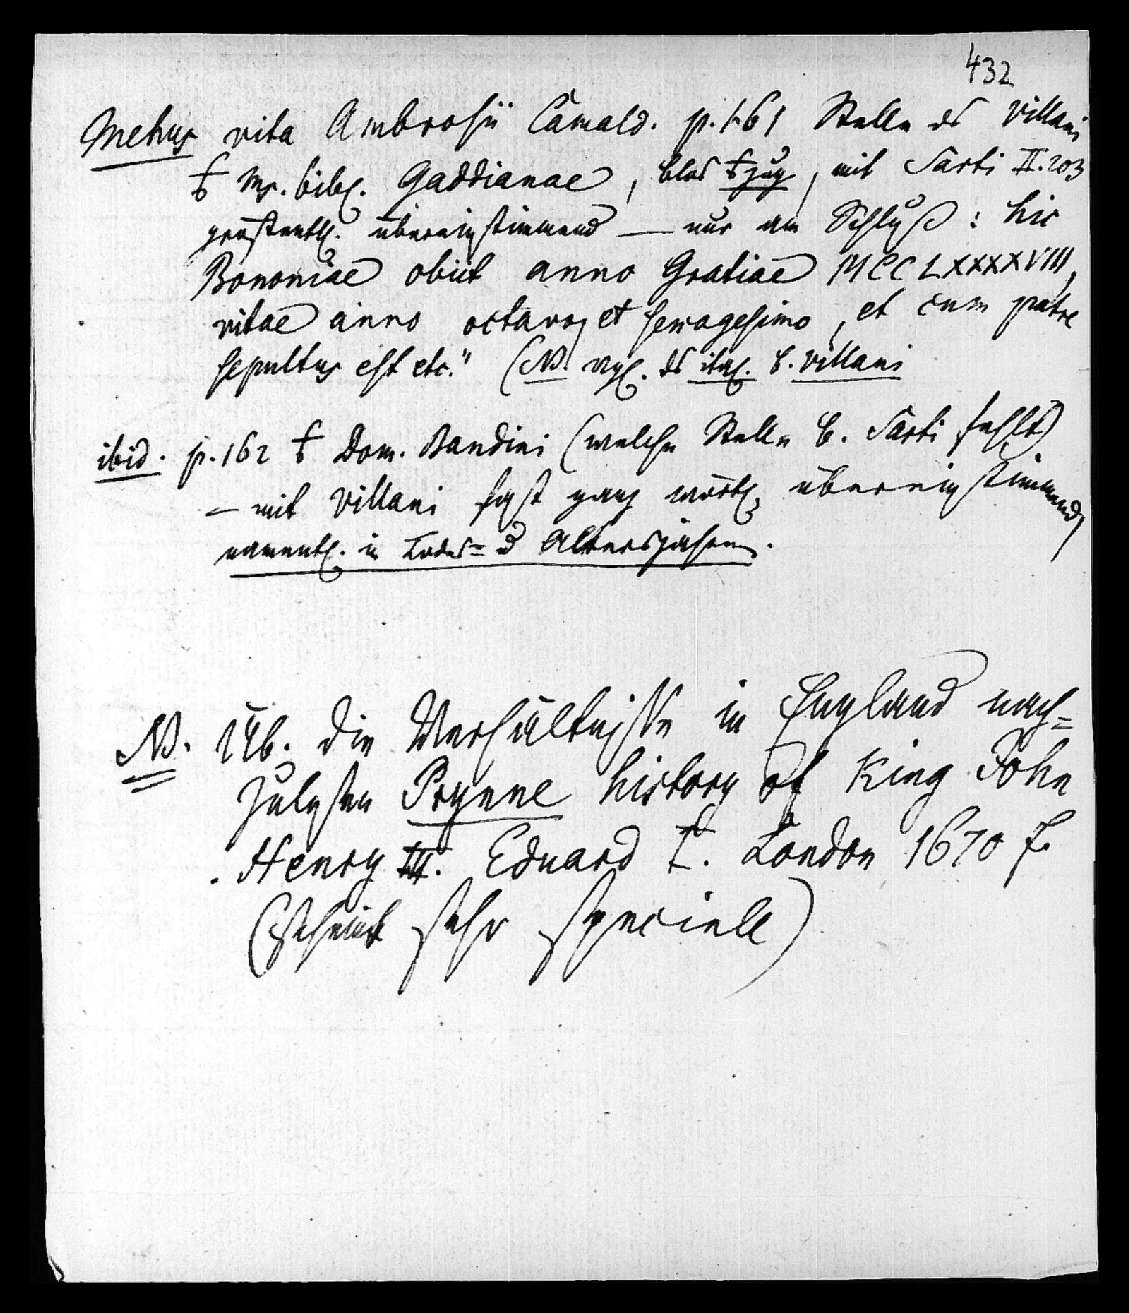 432
Mehus vita Ambrosii Camald. p. 161 Stelle ds Villani
Ms. bibl. Gaddianae, blos, mit Sarti II. 203
grostentl. übereinstimmend — nur am Schluß: hic
Bononiae obiit anno Gratiae MCCLXXXXVIII,
vitae anno octavo et sexagesimo, et cum patre
sepultus est etc." (NB. vgl. ds ital. b. Villani
ibid. p. 162 Dom. Bandini (welche Stelle b. Sarti fehlt)
— mit Villani fast ganz wörtl. übereinstimmend,
namentl. in Todes= u Altersjahren.
NB. Üb. die Verhältnisse in England nach=
zusehen Prynne history of King John
Henry III. Eduard I. London 1670 f.
(scheint sehr speciell)